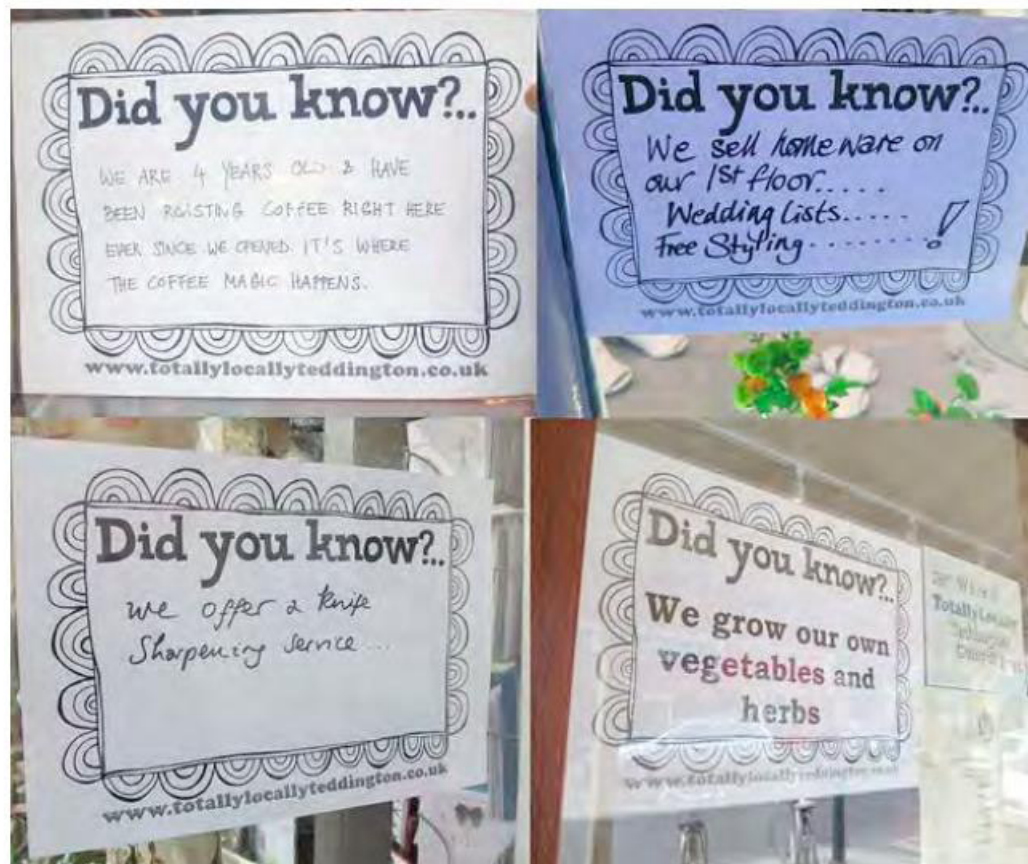 Did you know?..
WE ARE 4 YEARS OLD & HAVE
BEEN ROISTING COFFEE RIGHT HERE
EVER SINCE WE OPENED. IT'S WHERE
THE COFFEE MAGIC HAPPENS.
www.totallylocallyteddington.co.uk
Did you know?..
We sell homeware on
our 1st floor.....
Wedding Lists.....
Free Styling........!
www.totallylocallyteddington.co.uk
Did you know?..
We offer a knife
Sharpening service...
www.totallylocallyteddington.co.uk
Did you know?..
We grow our own
vegetables and
herbs
www.totallylocallyteddington.co.uk
Totally Locally